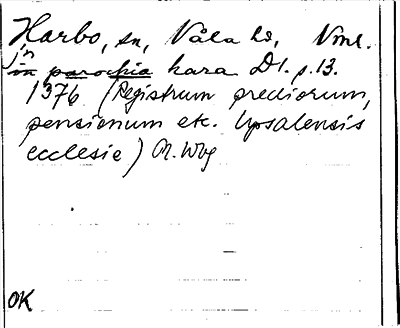 Harbo, sn, Våla hd, Vml.
jn
in parochia hara D1. s. 13.
1376 (Registrum prediorum,
pensionum etc. Upsalensis
ecclesie) N. Wbg
OK